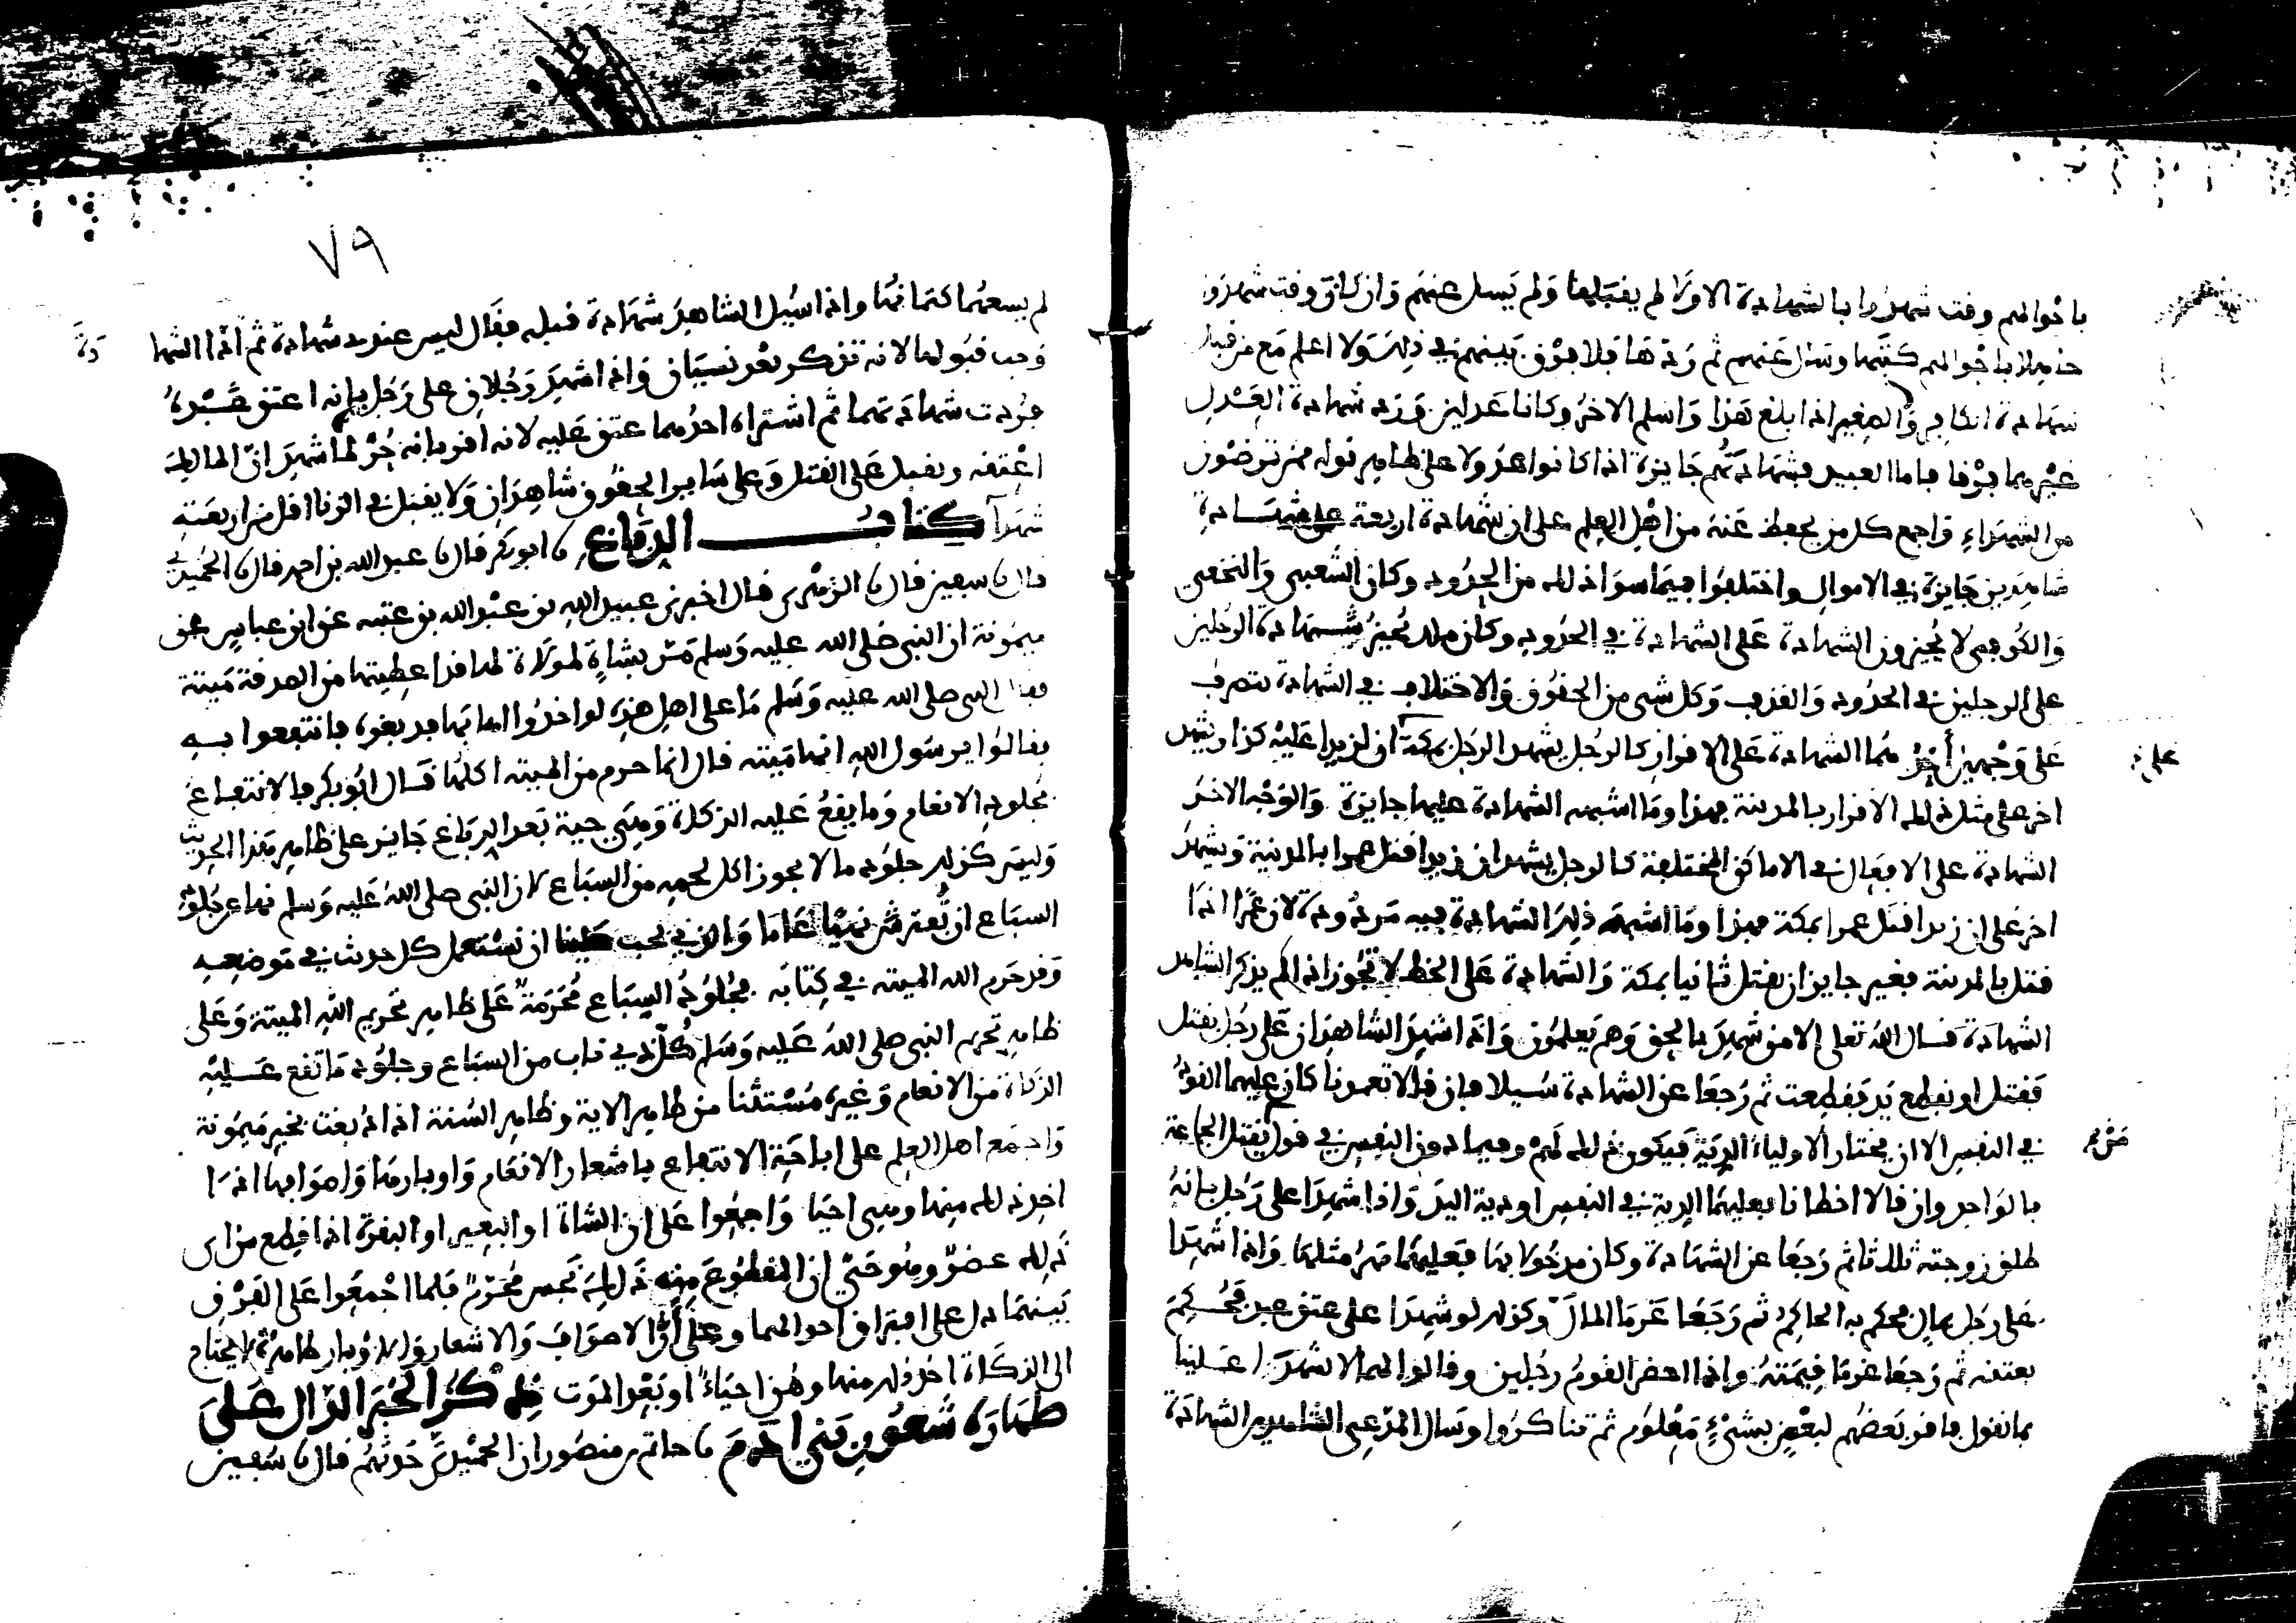 باحوالهم وقت شهدوا بالشهادة الاولا لم يقبلها ولم يسل عنهم وان كان وقت شهدوا
جاهلا باحوالهم كتبها وسال عنهم ثم ردها فلا فرق بينهم في ذلك ولا اعلم مع من قبل
شهادة الكافر والصغير اذا بلغ هذا واسلم الاخر وكانا عدلين ورد شهادة العدل
غيرهما فرقا فاما العبيد فشهادتهم جايزة اذا كانوا عدولا على ظاهر قوله ممن ترضون
من الشهداء واجمع كل من يحفظ عنه من اهل العلم على ان شهادة اربعة على شهادة
شاهدين جايزة في الاموال واختلفوا فيما سوا ذلك من الحدود وكان الشعبي والنخعي
والكوفي لا يجيزون الشهادة على الشهادة في الحدود وكان ملك يجيز شهادة الرجلين
على الرجلين في الحدود والقذف وكل شي من الحقوق والاختلاف في الشهادة يتصرف
على وجهين احدهما الشهادة على الاقرار كالرجل يشهد الرجل بمكة ان لزيد اعليه كذا ويشهد
على
اخر على مثل ذلك الاقرار بالمدينة فهذا وما اشبهه الشهادة عليها جايزة والوجه الاخر
الشهادة على الافعال في الاماكن المختلفة كالرجل يشهد ان زيدا قتل عمرا بالمدينة ويشهد
اخر على ان زيدا قتل عمرا بمكة فهذا وما اشبهه ذلك الشهادة فيه مردودة لان عمرا اذا
قتل بالمدينة فغير جايز ان يقتل ثانيا بمكة والشهادة على الخط لا تجوز اذا لم يذكر الشاهد
الشهادة قال الله تعلى الا من شهد بالحق وهم يعلمون واذا شهد الشاهدان على رجل بقتل
فقتل او بقطع يد فقطعت ثم رجعا عن الشهادة سيلا فان قالا تعمدنا كان عليهما القود
في النفس الا ان يختار الاولياء الدية فيكون ذلك لهم وفيما دون النفس في قول يقتل الجماعة
بالواحد وان قالا اخطانا فعليهما الدية في النفس او دية اليد واذا شهدا على رجل بانه
طلق زوجته ثلاثا ثم رجعا عن الشهادة وكان مدخولا بها فعليهما مهر مثلها واذا شهدا
على رجل بمال فحكم به الحاكم ثم رجعا غرما المال وكذلك لو شهدا على عتق عبد فحكم
بعتقه ثم رجعا غرما قيمته واذا احضر القوم رجلين وقالوا لهما لا تشهدا علينا
بما نقول فاقر بعضهم لبعض بشيء معلوم ثم تناكروا وسال المدعي الشاهدين الشهادة
٧٩
لم يسعهما كتمانها واذا سيل الشاهد شهادة قبله فقال ليس عندي شهادة ثم ادا الشها
دة
وجب قبولها لانه تذكر بعد نسيان واذا شهد رجلان على رجل بانه اعتق عبده
فردت شهادتهما ثم اشتراه احدهما عتق عليه لانه اقر بانه حر لما شهد ان المالك
اعتقه ويقبل على القتل وعلى ساير الحقوق شاهدان ولا يقبل في الزنا اقل من اربعة
شهدا كتاب الدباغ نا ابو بكر قال نا عبد الله بن احمد قال نا الحميدي
قال نا سفين قال نا الزهري قال اخبرني عبيد الله بن عبد الله بن عتبة عن ابن عباس عن
ميمونة ان النبي صلى الله عليه وسلم مر بشاة لمولاة لها قد اعطيتها من الصدقة ميتة
فقال النبي صلى الله عليه وسلم ما على اهل هذه لو اخذوا اهابها فدبغوه فانتفعوا به
فقالوا يرسول الله انها ميتة قال انما حرم من الميتة اكلها قال ابو بكر فالانتفاع
بجلود الانعام وما يقع عليه الزكاة وهي حية بعد الدباغ جايز على ظاهر هذا الحديث
وليس كذلك جلود ما لا يجوز اكل لحمه من السباع لان النبي صلى الله عليه وسلم نها عن جلود
السباع ان تفترش نهيا عاما والذي يجب علينا ان نستعمل كل حديث في موضعه
وقد حرم الله الميتة في كتابه فجلود السباع محرمة على ظاهر تحريم الله الميتة وعلى
ظاهر تحريم النبي صلى الله عليه وسلم كل ذي ناب من السباع وجلود ما تقع عليه
الزكاة من الانعام وغيره مستثنا من ظاهر الاية وظاهر السنة اذا دبغت بخبر ميمونة
واجمع اهل العلم على اباحة الانتفاع باشعار الانعام واوبارها واصوافها اذا
اخذ ذلك منها وهي احيا واجمعوا على ان الشاة او البعير او البقرة اذا قطع من اي
ذلك عضو وهو حي ان المقطوع منه ذلك نجس محرم فلما اجمعوا على الفرق
بينهما دل على افتراق احوالهما وعلى ان الاصواف والاشعار والاوبار طاهرة لا يحتاج
الى الذكاة اخذ ذلك منها وهن احياء او بعد الموت ذكر الخبر الدال على
طهارة شعور بني ادم نا حاتم بن منصور ان الحميدي حدثهم قال نا سفين